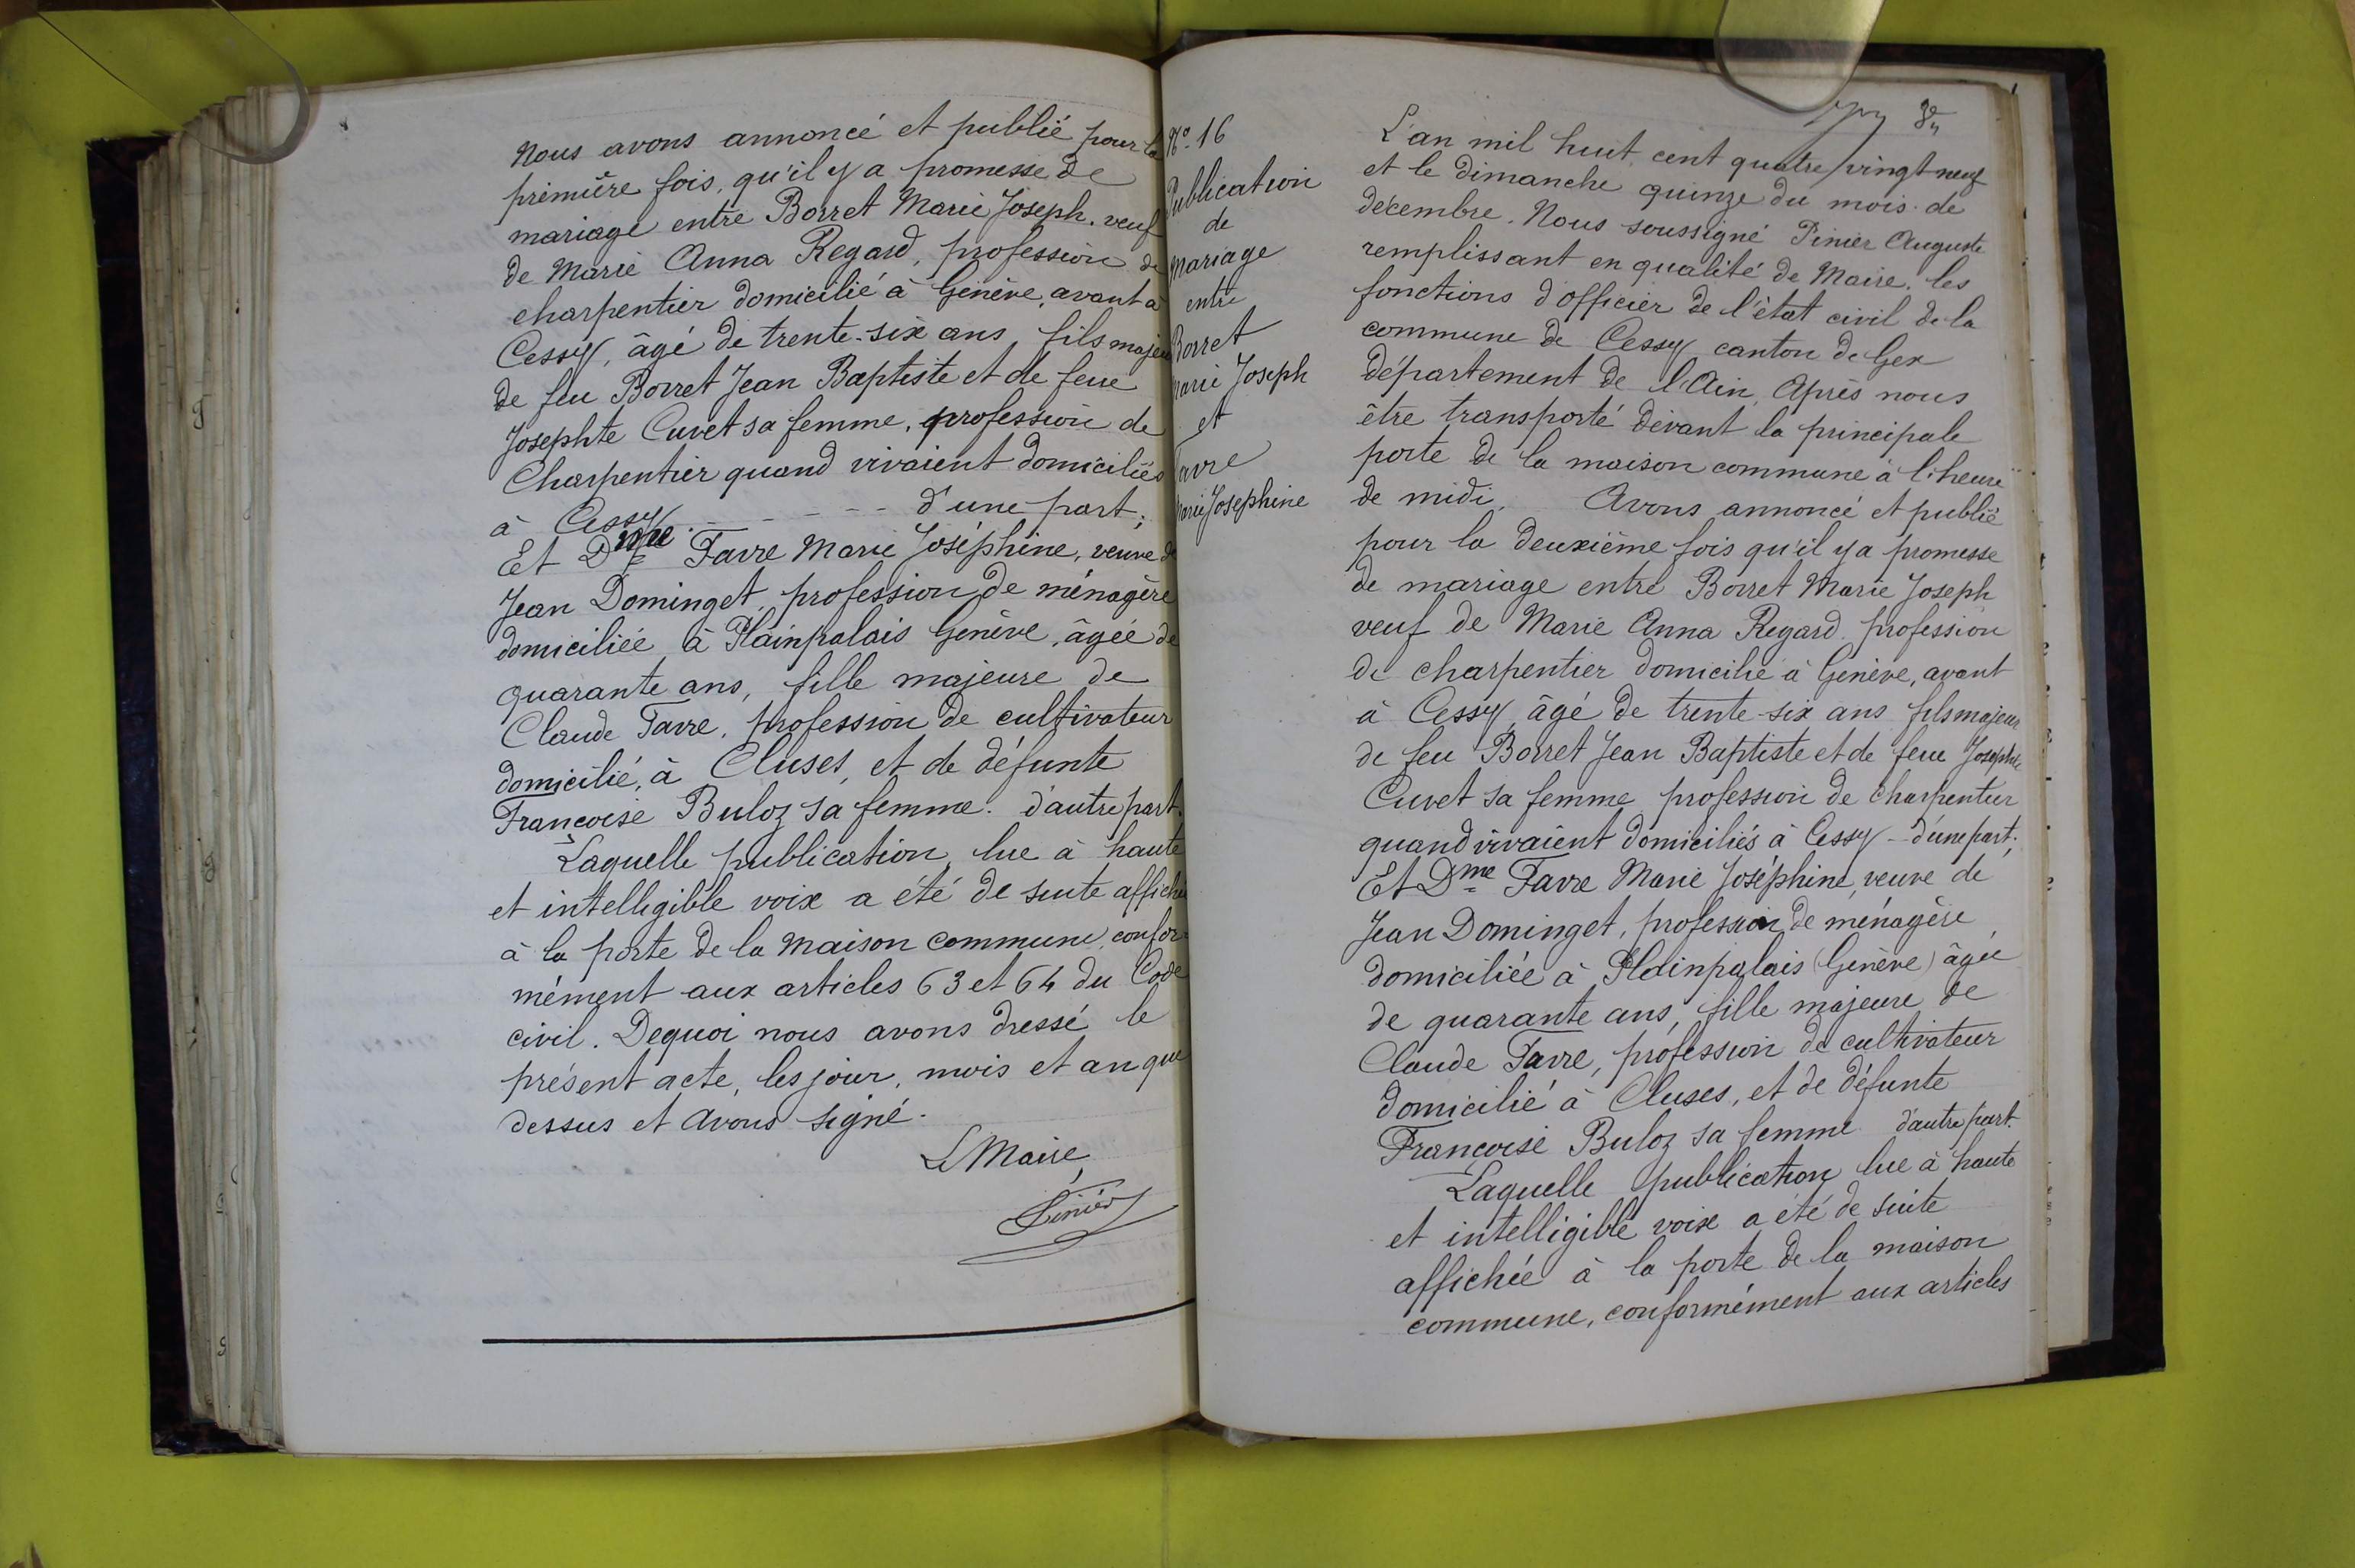 Nous avons annoncé et publié pour la
première fois, qu'il y a promesse de
mariage entre Borret Marie Joseph, veuf
de Marie Anna Regard, profession de
charpentier domicilié à Genève, avant à
Cessy, âgé de trente-six ans fils majeur
de feu Borret Jean Baptiste et de feue
Josephte Cuvet sa femme, profession de
Charpentier quand vivaient domiciliés
à Cessy. - - - - - - d'une part;
Et Dme Favre Marie Joséphine, veuve de
Jean Dominget, profession de ménagère
domiciliée à Plainpalais Genève, âgée de
quarante ans, fille majeure de
Claude Favre, profession de cultivateur
domicilié, à Cluses, et de défunte
Françoise Buloz sa femme. d'autre part.
Laquelle publication, lue à haute
et intelligible voix a été de suite affichée
à la porte de la Maison commune, confor-
mément aux articles 63 et 64 du Code
civil. Dequoi nous avons dressé le
présent acte, les jour, mois et an que
dessus et avons signé.
Le Maire,
Pinier
No. 16
Publication
de
Mariage
entre
Borret
Marie Joseph
et
Favre
Marie Josephine
L'an mil huit cent quatre vingt neuf
et le dimanche quinze du mois de
décembre. Nous soussigné Pinier Auguste
remplissant en qualité de Maire, les
fonctions d'officier de l'état civil de la
commune de Cessy canton de Gex
département de l'Ain, Après nous
être transporté devant la principale
porte de la maison commune à l'heure
de midi, Avons annoncé et publié
pour la deuxième fois qu'il y a promesse
de mariage entre Borret Marie Joseph
veuf de Marie Anna Regard profession
de charpentier domicilié à Genève, avant
à Cessy, âgé de trente-six ans fils majeur
de feu Borret Jean Baptiste et de feue Josephte
Cuvet sa femme profession de charpentier
quand vivaient domiciliés à Cessy - d'une part;
Et Dme Favre Marie Joséphine, veuve de
Jean Dominget, profession de ménagère,
domiciliée à Plainpalais (Genève) âgée
de quarante ans, fille majeure de
Claude Favre, profession de cultivateur
domicilié à Cluses, et de défunte
Françoise Buloz sa femme d'autre part.
Laquelle publication lue à haute
et intelligible voix a été de suite
affichée à la porte de la maison
commune, conformément aux articles